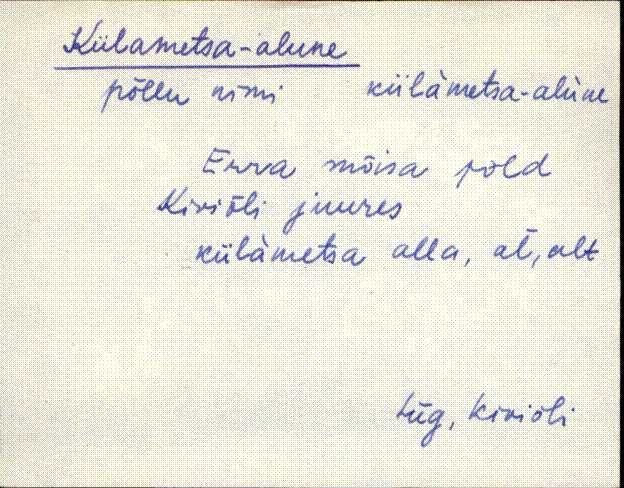 Külametsa-alune
põllu nimi külàmetsa-alùne
Erra mõisa põld
Kiviõli juures
külàmetsa alla, al̄, alt
Lüg, Kiviõli